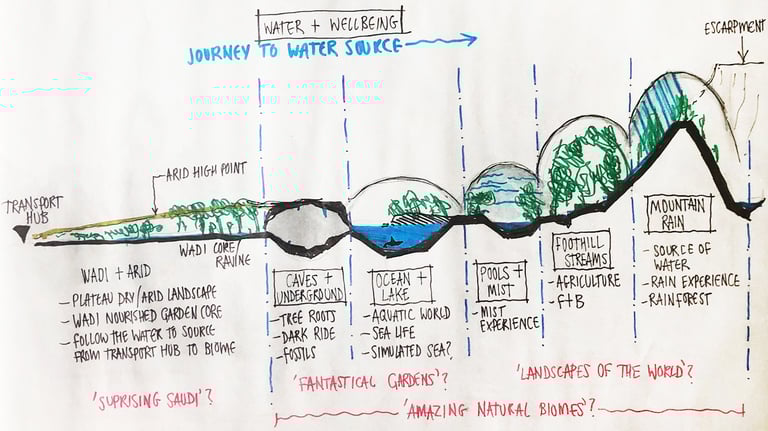 WATER + WELLBEING
JOURNEY TO WATER SOURCE
ESCARPMENT
ARID HIGH POINT
TRANSPORT
HUB
WADI CORE/
RAVINE
WADI + ARID
- PLATEAU DRY/ARID LANDSCAPE
- WADI NOURISHED GARDEN CORE
- FOLLOW THE WATER TO SOURCE
FROM TRANSPORT HUB TO BIOME
CAVES +
UNDERGROUND
- TREE ROOTS
- DARK RIDE
- FOSSILS
OCEAN +
LAKE
- AQUATIC WORLD
- SEA LIFE
- SIMULATED SEA?
POOLS +
MIST
- MIST EXPERIENCE
FOOTHILL
STREAMS
- AGRICULTURE
- F+B
MOUNTAIN
RAIN
- SOURCE OF
WATER
- RAIN EXPERIENCE
- RAINFOREST
'SUPRISING SAUDI'?
'FANTASTICAL GARDENS'?
'LANDSCAPES OF THE WORLD'?
'AMAZING NATURAL BIOMES'?